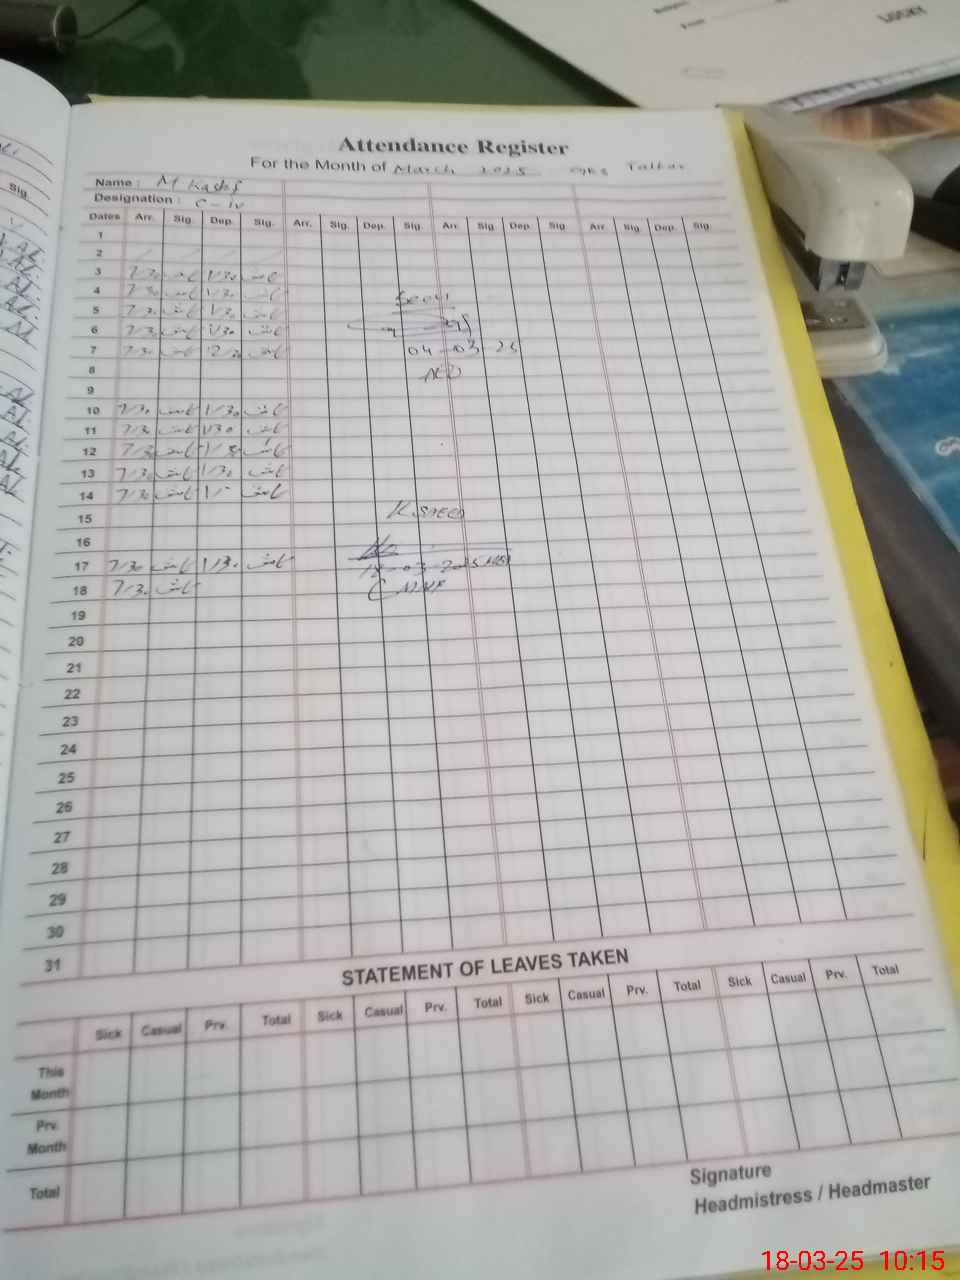 LUCKY
Attendance Register
For the Month of March 2025
Name : M Kashif
Designation : C-iv
Dates Arr. Sig. Dep. Sig. Arr. Sig. Dep. Sig. Arr. Sig. Dep. Sig. Arr. Sig. Dep. Sig.
1
2
3 7/30 کاشف 1/30 کاشف
4 7/30 کاشف 1/30 کاشف
5 7/30 کاشف 1/30 کاشف
6 7/30 کاشف 1/30 کاشف
7 7/30 کاشف کاشف 04-03-25
8
9
10 7/30 کاشف 1/30 کاشف
11 7/30 کاشف 1/30 کاشف
12 7/30 کاشف 1/30 کاشف
13 7/30 کاشف 1/30 کاشف
14 7/30 کاشف کاشف
15
16
17 7/30 کاشف 1/30 کاشف 18-03-2025
18 7/30 کاشف
19
20
21
22
23
24
25
26
27
28
29
30
31
STATEMENT OF LEAVES TAKEN
Sick Casual Prv. Total Sick Casual Prv. Total Sick Casual Prv. Total Sick Casual Prv. Total
This Month
Prv. Month
Total
Signature
Headmistress / Headmaster
18-03-25 10:15